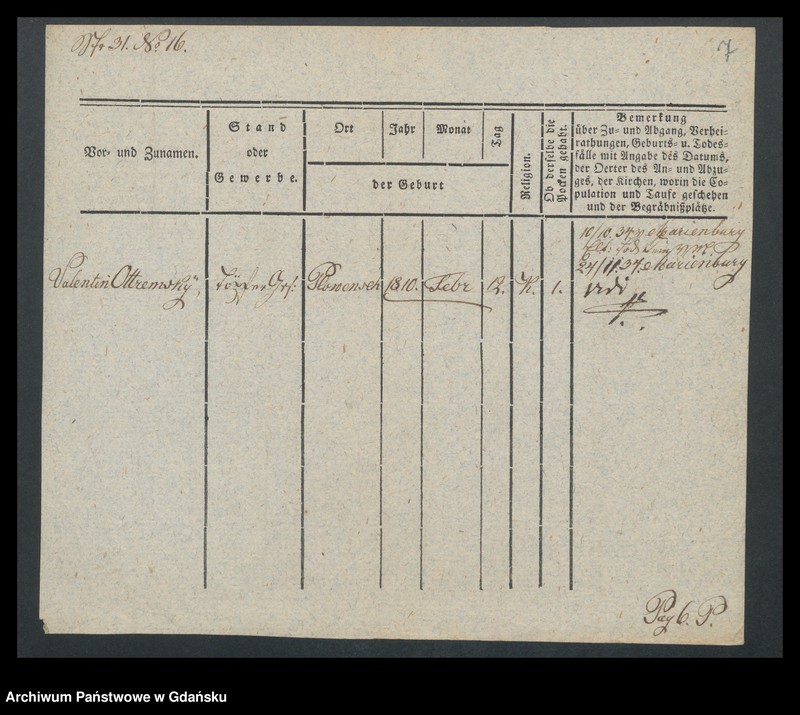 31. No 16.
7
Vor- und Zunamen.
Stand
oder
Gewerbe.
Ort
Jahr
Monat
Tag
der Geburt
Religion.
Ob derselbe die
Pocken gehabt.
Bemerkung
über Zu- und Abgang, Verhei-
rathungen, Geburts- u. Todes-
fälle mit Angabe des Datums,
der Oerter des An- und Abzu-
ges, der Kirchen, worin die Co-
pulation und Taufe geschehen
und der Begräbnißplätze.
10/10. 34. v. Marienburg
24/11. 34. Marienburg
Valentin Ottremsky, Töpfer Plowensch 1810. Febr 12. K. 1.
6. P.
Archiwum Państwowe w Gdańsku